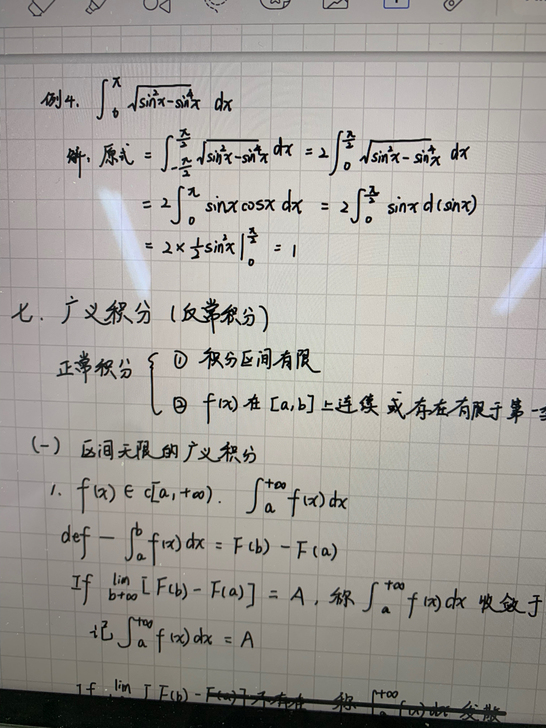 例4. ∫₀^π √(sin²x-sin⁴x) dx
解: 原式 = ∫_{-π/2}^{π/2} √(sin²x-sin⁴x) dx = 2∫₀^{π/2} √(sin²x-sin⁴x) dx
= 2∫₀^π sinx cosx dx = 2∫₀^{π/2} sinx d(sinx)
= 2 × ½ sin²x |₀^{π/2} = 1
七. 广义积分 (反常积分)
正常积分 { ① 积分区间有限
② f(x) 在 [a,b] 上连续 或 存在有限于第一
(一) 区间无限的广义积分
1. f(x) ∈ c[a,+∞). ∫ₐ^{+∞} f(x)dx
def — ∫ₐᵇ f(x)dx = F(b) - F(a)
If lim_{b→∞} [F(b) - F(a)] = A, 称 ∫ₐ^{+∞} f(x)dx 收敛于
记 ∫ₐ^{+∞} f(x)dx = A
If lim [F(b) - F(a)] 不存在 称 ∫ₐ^{+∞} f(x)dx 发散